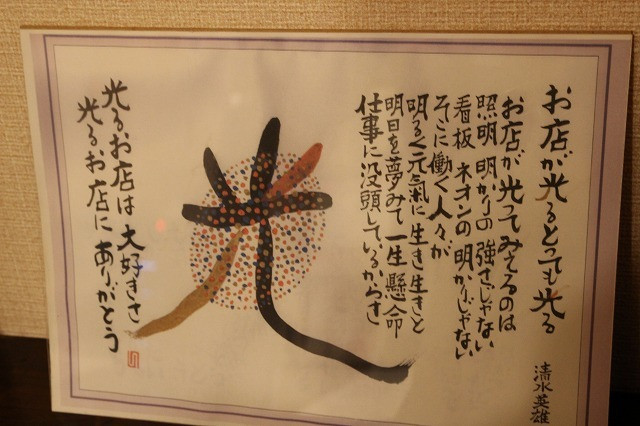 お店が光るとっても光る
お店が光ってみえるのは
照明 明かりの強さじゃない
看板 ネオンの明かりじゃない
そこに働く人々が
明るく元氣に生き生きと
明日を夢みて一生懸命
仕事に没頭しているからさ
清水英雄
光
光るお店は大好きさ
光るお店にありがとう